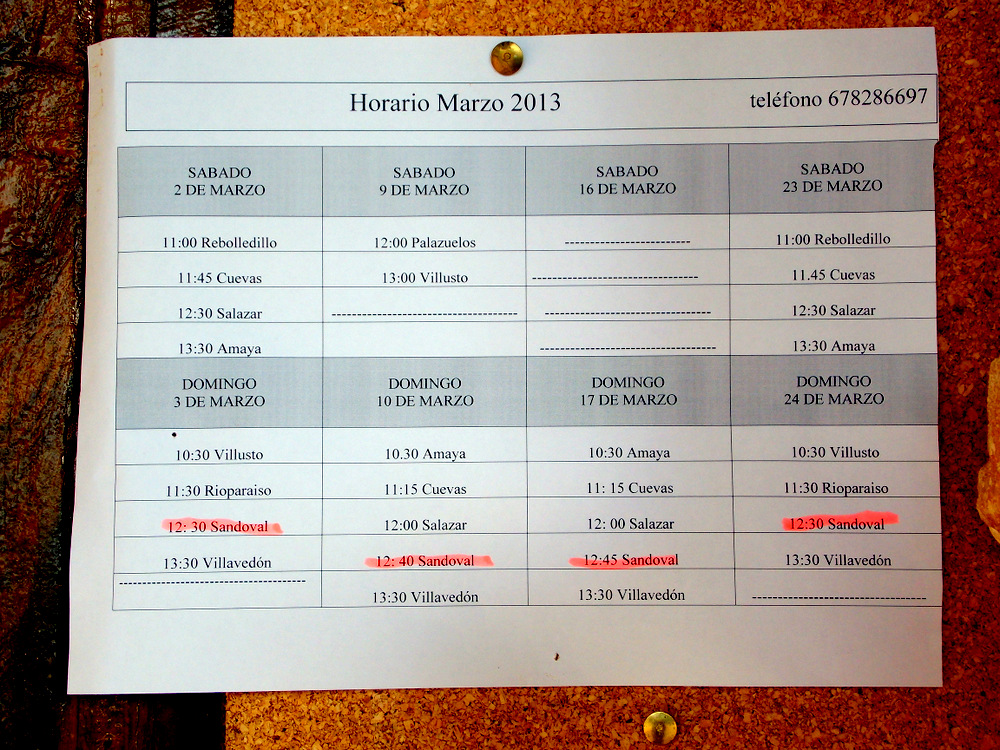 Horario Marzo 2013 teléfono 678286697
SABADO SABADO SABADO SABADO
2 DE MARZO 9 DE MARZO 16 DE MARZO 23 DE MARZO
11:00 Rebolledillo 12:00 Palazuelos ------------------------- 11:00 Rebolledillo
11:45 Cuevas 13:00 Villusto --------------------------------- 11.45 Cuevas
12:30 Salazar ------------------------------------- --------------------------------- 12:30 Salazar
13:30 Amaya ----------------------------------- 13:30 Amaya
DOMINGO DOMINGO DOMINGO DOMINGO
3 DE MARZO 10 DE MARZO 17 DE MARZO 24 DE MARZO
10:30 Villusto 10.30 Amaya 10:30 Amaya 10:30 Villusto
11:30 Rioparaiso 11:15 Cuevas 11: 15 Cuevas 11:30 Rioparaiso
12: 30 Sandoval 12:00 Salazar 12: 00 Salazar 12:30 Sandoval
13:30 Villavedón 12: 40 Sandoval 12:45 Sandoval 13:30 Villavedón
------------------------------------- 13:30 Villavedón 13:30 Villavedón -----------------------------------